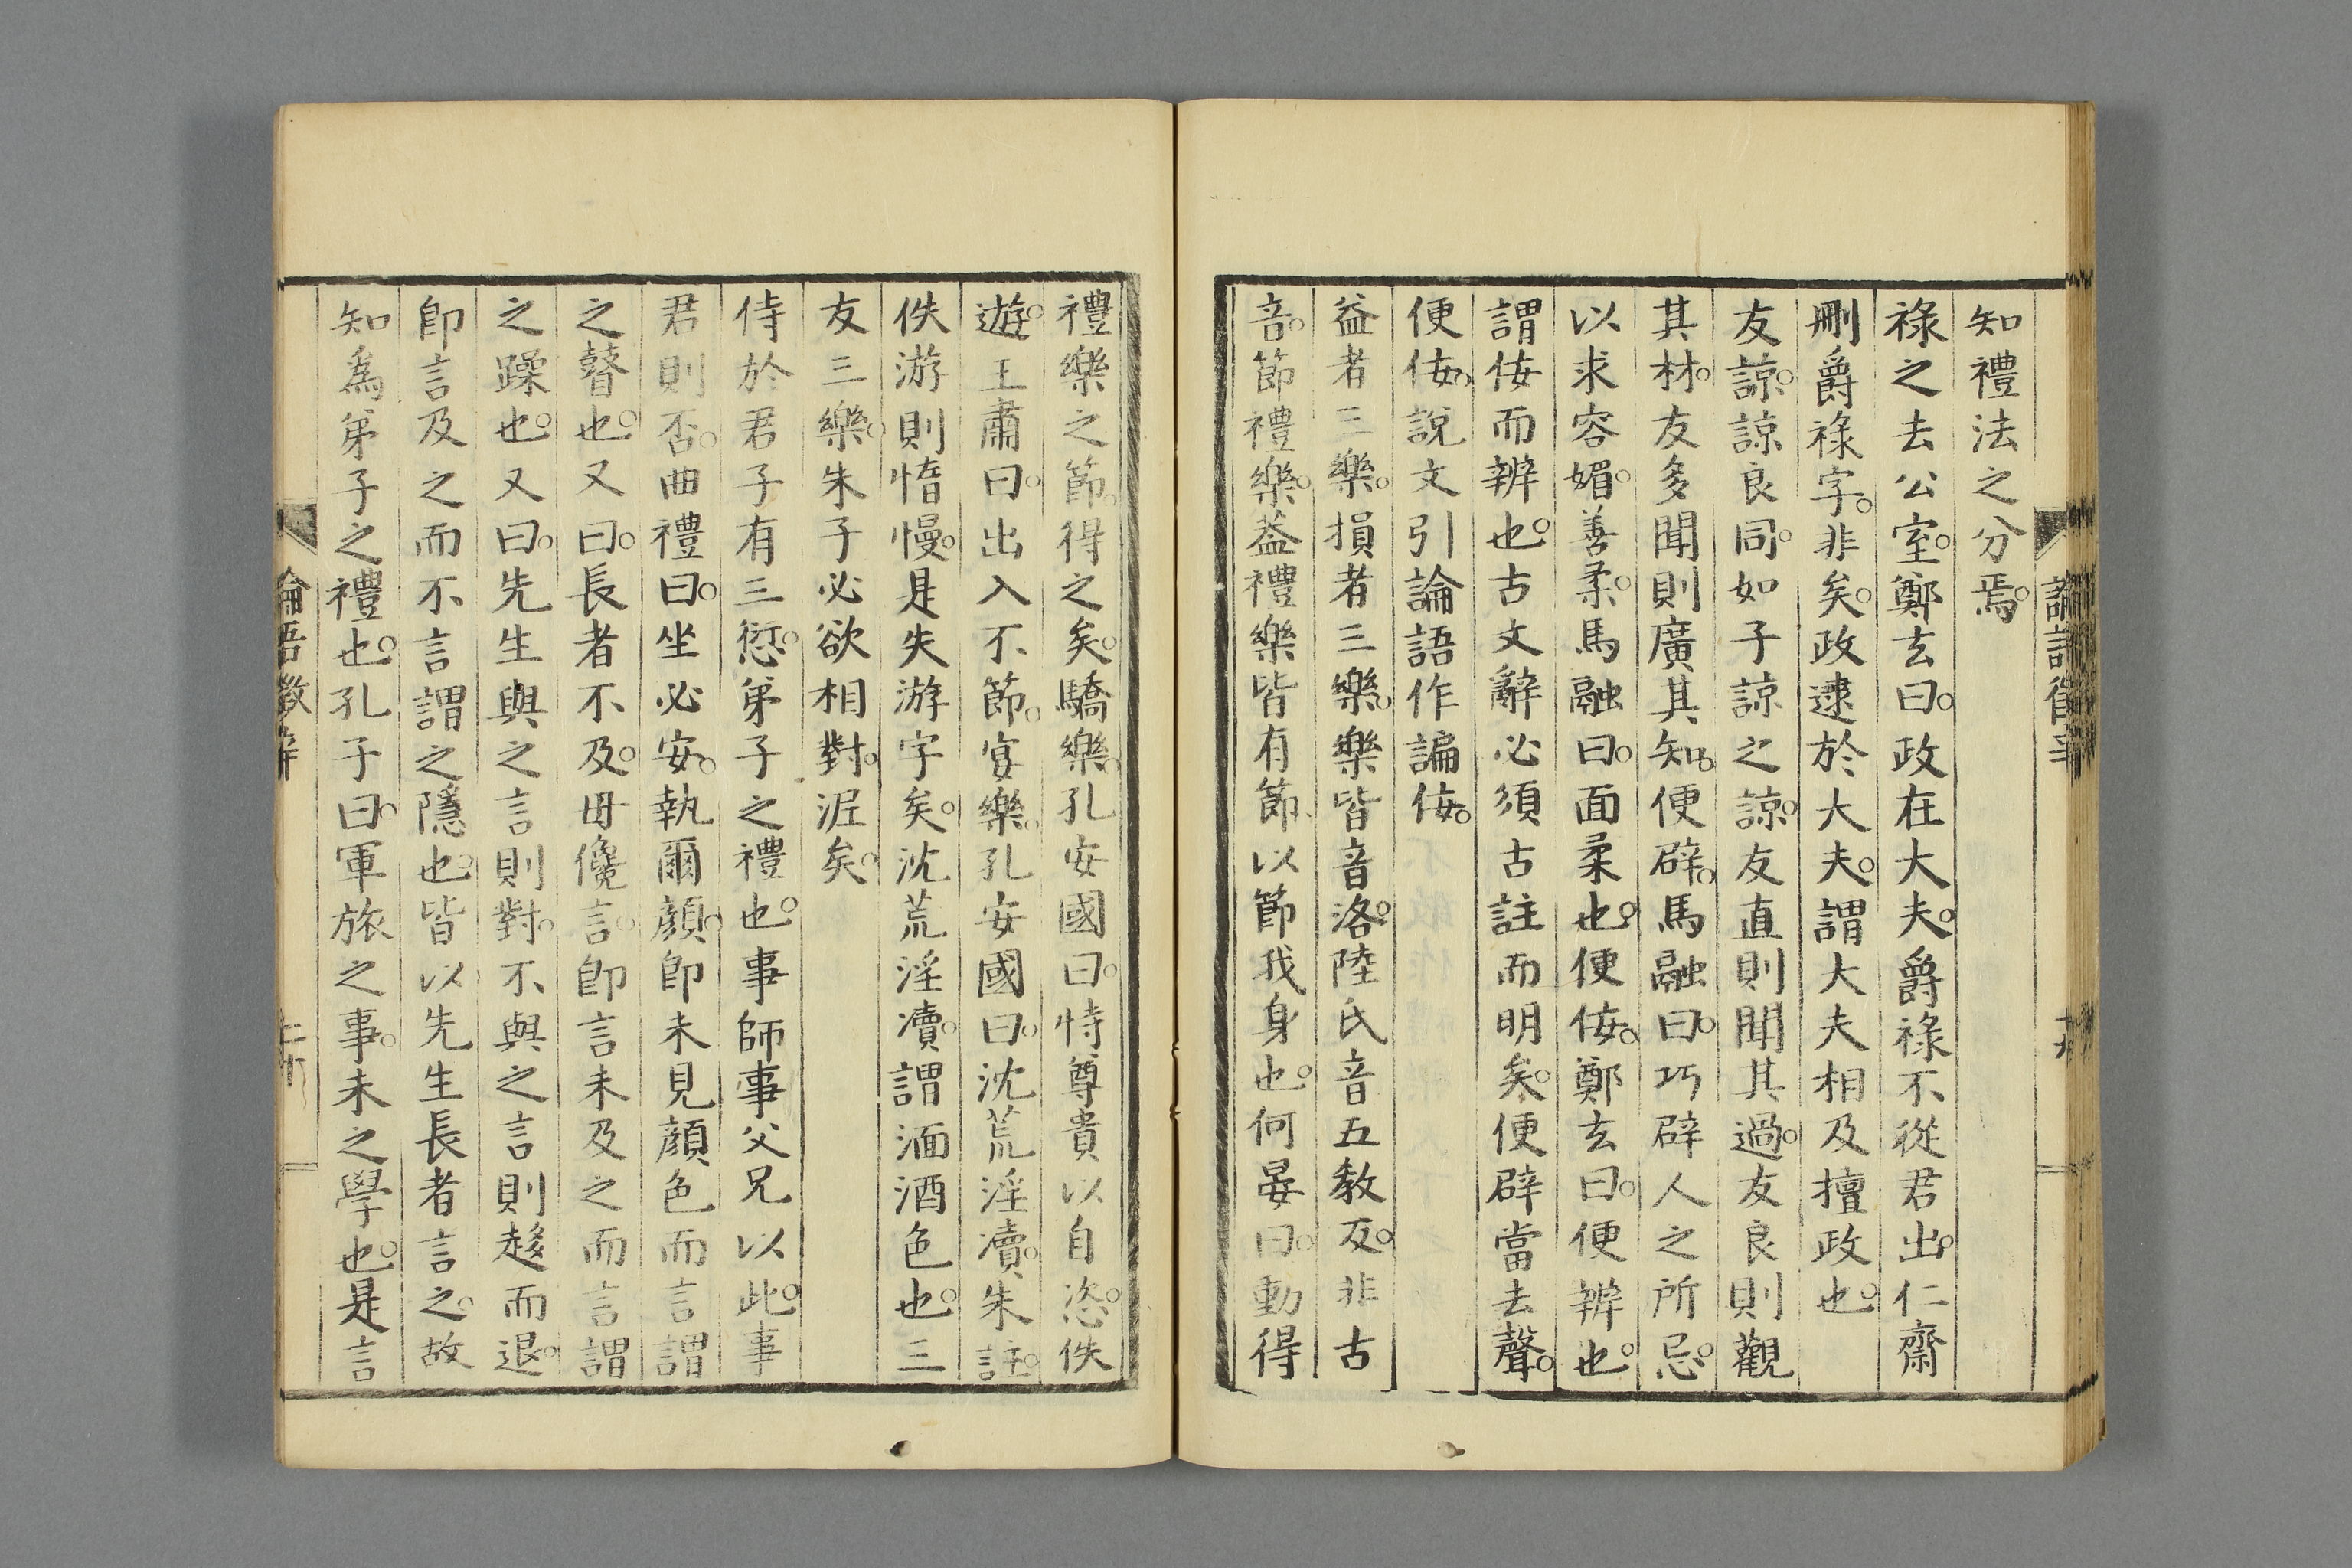 知禮法之分焉。
祿之去公室。鄭玄曰。政在大夫。爵祿不從君出。仁齋
刪爵祿字。非矣。政逮於大夫。謂大夫相及擅政也。
友諒。諒良同。如子諒之諒。友直則聞其過。友良則觀
其材。友多聞則廣其知。便辟。馬融曰。巧辟人之所忌。
以求容媚。善柔。馬融曰。面柔也。便佞。鄭玄曰。便辨也。
謂佞而辨也。古文辭必須古註而明矣。便辟當去聲。
便佞。說文引論語作諞佞。
益者三樂。損者三樂。樂皆音洛。陸氏音五教反。非古
音。節禮樂。蓋禮樂皆有節。以節我身也。何晏曰。動得
禮樂之節。得之矣。驕樂。孔安國曰。恃尊貴以自恣。佚
遊。王肅曰。出入不節。宴樂。孔安國曰。沈荒淫瀆。朱註。
佚游則惰慢。是失游字矣。沈荒淫瀆。謂湎酒色也。三
友三樂。朱子必欲相對。泥矣。
侍於君子有三愆。弟子之禮也。事師事父兄以此。事
君則否。曲禮曰。坐必安。執爾顏。卽未見顏色而言謂
之瞽也。又曰。長者不及。毋儳言。卽言未及之而言謂
之躁也。又曰。先生與之言則對。不與之言則趨而退。
卽言及之而不言謂之隱也。皆以先生長者言之。故
知為弟子之禮也。孔子曰。軍旅之事。未之學也。是言
論語徵 辛